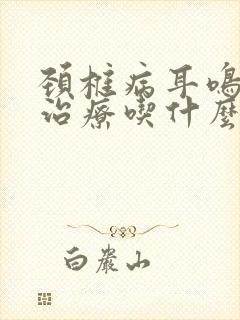 頚椎病耳鳴
治療喫什麼
白巖山